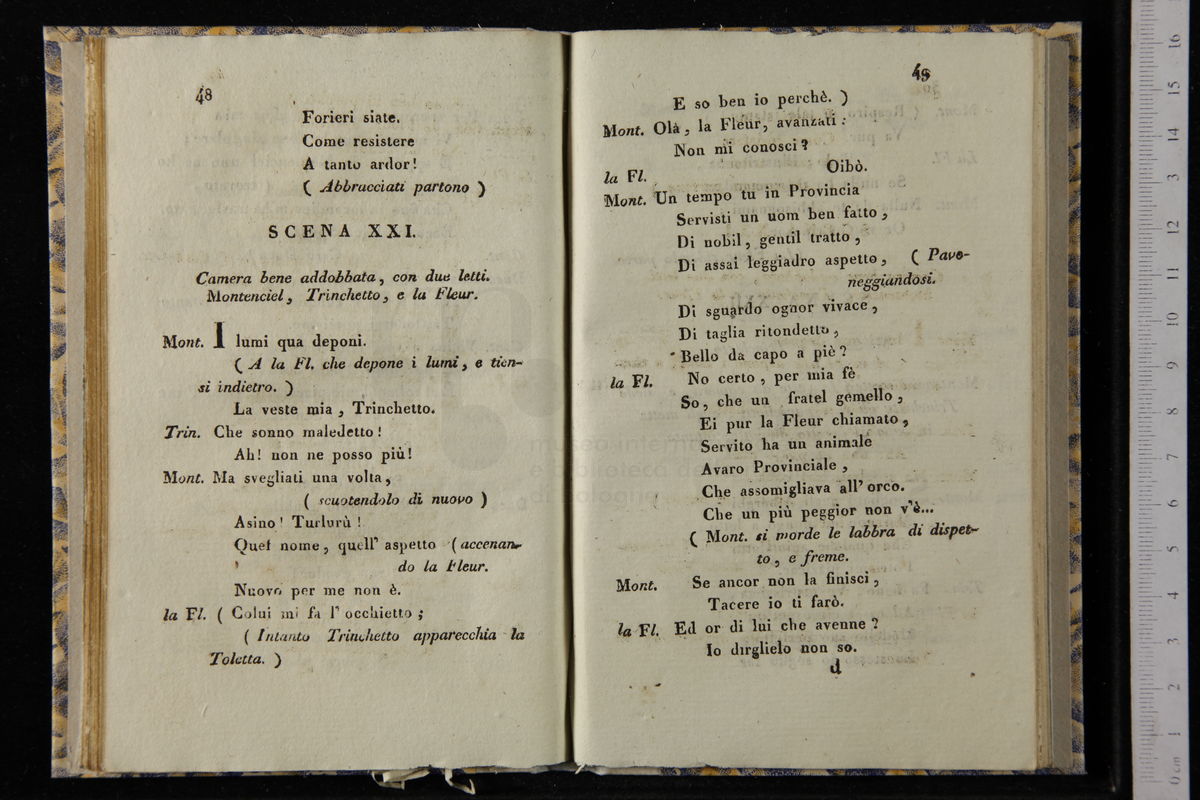 48
Forieri siate.
Come resistere
A tanto ardor!
( Abbracciati partono )
SCENA XXI.
Camera bene addobbata, con due letti.
Montenciel, Trinchetto, e la Fleur.
Mont. I lumi qua deponi.
( A la Fl. che depone i lumi, e tien-
si indietro. )
La veste mia, Trinchetto.
Trin. Che sonno maledetto!
Ah! non ne posso più!
Mont. Ma svegliati una volta,
( scuotendolo di nuovo )
Asino! Turlurù!
Quel nome, quell' aspetto ( accenan-
do la Fleur.
Nuovo per me non è.
la Fl. ( Colui mi fa l' occhietto;
( Intanto Trinchetto apparecchia la
Toletta. )
49
E so ben io perchè. )
Mont. Olà, la Fleur, avanzati:
Non mi conosci?
la Fl. Oibò.
Mont. Un tempo tu in Provincia
Servisti un uom ben fatto,
Di nobil, gentil tratto,
Di assai leggiadro aspetto, ( Pavo-
neggiandosi.
Di sguardo ognor vivace,
Di taglia ritondetta,
Bello da capo a piè?
la Fl. No certo, per mia fè
So, che un fratel gemello,
Ei pur la Fleur chiamato,
Servito ha un animale
Avaro Provinciale,
Che assomigliava all' orco.
Che un più peggior non v'è...
( Mont. si morde le labbra di dispet-
to, e freme.
Mont. Se ancor non la finisci,
Tacere io ti farò.
la Fl. Ed or di lui che avenne?
Io dirglielo non so.
d
museo interna
e biblioteca de
di Bologna
0 cm 1 2 3 4 5 6 7 8 9 10 11 12 13 14 15 16